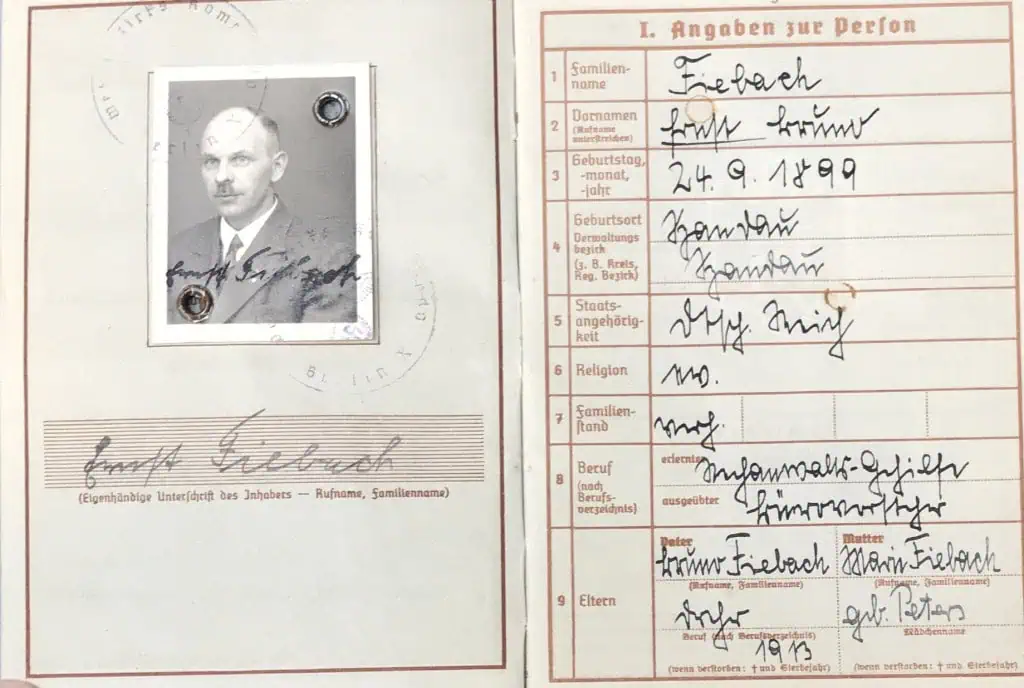 Ernst Fiebach
Ernst Fiebach
(Eigenhändige Unterschrift des Inhabers — Rufname, Familienname)
I. Angaben zur Person
1 Familien-
name
Fiebach
2 Vornamen
(Rufname
unterstreichen)
Ernst Bruno
3 Geburtstag,
-monat,
-jahr
24. 9. 1899
4 Geburtsort
Verwaltungs
bezirk
(z. B. Kreis,
Reg. Bezirk)
Spandau
Spandau
5 Staats-
angehörig-
keit
Dtsch. Reich
6 Religion
ev.
7 Familien-
stand
verh.
8 Beruf
(nach
Berufs-
verzeichnis)
erlernter
Rechanwalts-Gehilfe
ausgeübter
Bürovorsteher
9 Eltern
Vater
Bruno Fiebach
(Rufname, Familienname)
Mutter
Marie Fiebach
(Rufname, Familienname)
geb. Peters
Mädchenname
Beruf (nach Berufsverzeichnis)
1913
(wenn verstorben: † und Sterbejahr)
(wenn verstorben: † und Sterbejahr)